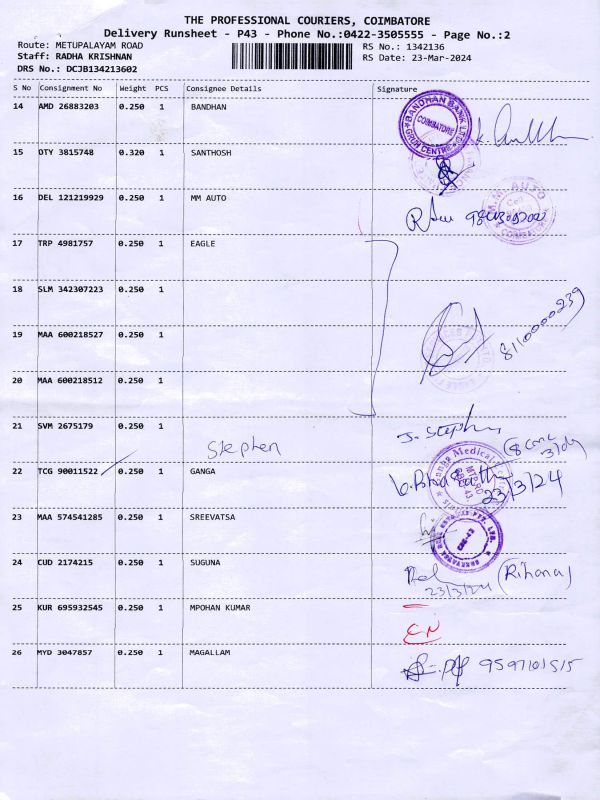 THE PROFESSIONAL COURIERS, COIMBATORE
Delivery Runsheet - P43 - Phone No.:0422-3505555 - Page No.:2
Route: METUPALAYAM ROAD
RS No.: 1342136
Staff: RADHA KRISHNAN
RS Date: 23-Mar-2024
DRS No.: DCJB134213602
S No Consignment No Weight PCS Consignee Details Signature
14 AMD 26883203 0.250 1 BANDHAN
BANDHAN BANK LTD
COIMBATORE
15 OTY 3815748 0.320 1 SANTHOSH
16 DEL 121219929 0.250 1 MM AUTO
M.M. AUTO
17 TRP 4981757 0.250 1 EAGLE
18 SLM 342307223 0.250 1
8110000239
19 MAA 600218527 0.250 1
20 MAA 600218512 0.250 1
21 SVM 2675179 0.250 1
Stephen
J. Stephen
22 TCG 90011522 0.250 1 GANGA
Ganga Medical
23/3/24
23 MAA 574541285 0.250 1 SREEVATSA
24 CUD 2174215 0.250 1 SUGUNA
(Rihana)
23/3/24
25 KUR 695932545 0.250 1 MPOHAN KUMAR
CN
26 MYD 3047857 0.250 1 MAGALLAM
9597101515